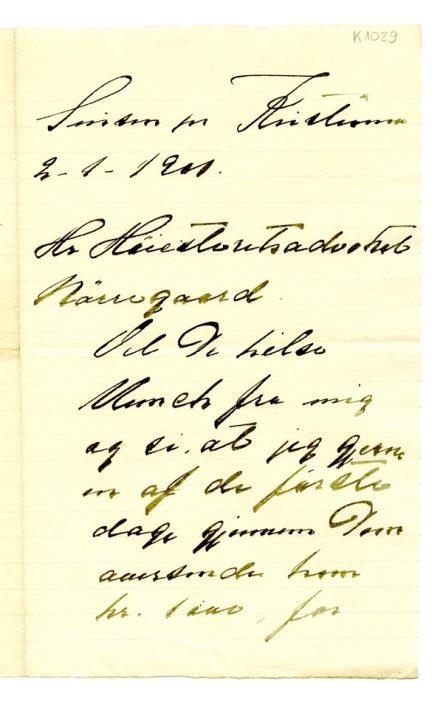 K1029
Sinsen pr Kristiania
2-1-1901.
Hr Höiesteretsadvokat
Nörregaard.
Vil De hilse
Munch fra mig
og si, at jeg gjerne
en af de første
dage gjennem Dem
oversender ham
kr. 1000, for